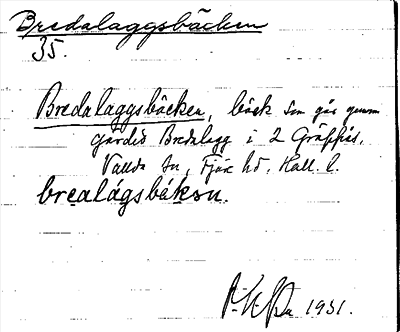 Bredalaggsbäcken
35.
Bredalaggsbäcken, bäck som går genom
gärdet Bredalagg i 2 Gräppås,
Vallda sn, Fjäre hd. Hall. l.
brealágsbäkən.
1931.